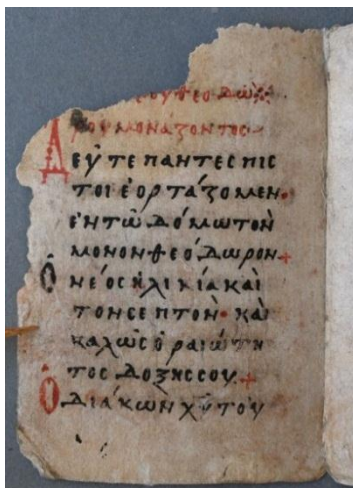 ου θεοδώ
ρου μονάζοντος
Δεῦτε πάντες πισ
τοὶ ἑορτάζομεν·
ἐν τῶ δόμω τὸν
μόνον θεόδωρον +
Ὁ νέος ἡλικία καὶ
τὸν σεπτὸν· καὶ
καλῶς ὁραιώτη
τος δόξης σου +
Ὁ διάκων χύτου